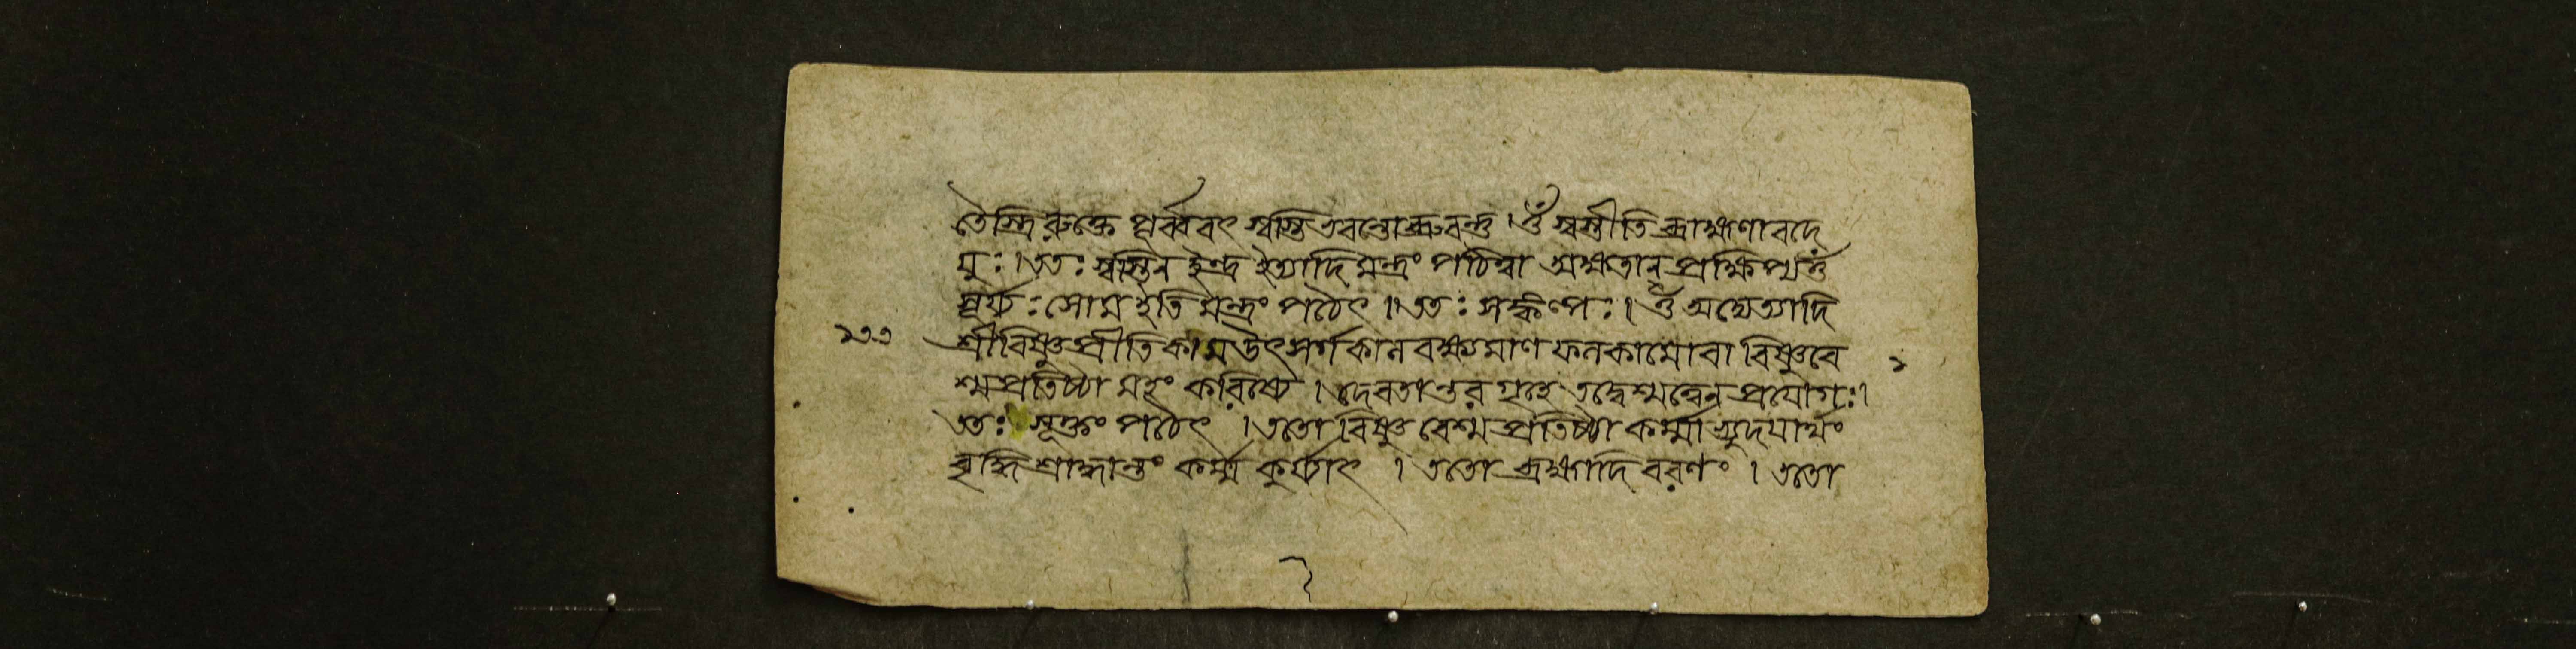 তৈস্ত্রিরুক্তে পূর্ব্ববৎ স্বস্তি ভবন্তো ব্রুবন্তু । ওঁ স্বস্তীতি ব্রাহ্মণা বদে
যুঃ । ততঃ স্বস্তিন ইন্দ্র ইত্যাদি মন্ত্রং পঠিত্বা অক্ষতান্ প্রাক্ষিপ্য ওঁ
সূর্য্যঃ সোম ইতি মন্ত্রং পঠেৎ । ততঃ সঙ্কল্পঃ । ওঁ অদ্যেত্যাদি
শ্রীবিষ্ণুপ্রীতিকাম উৎসর্গকাল বক্ষ্যমাণ ফলকামো বা বিষ্ণুবে
শ্মপ্রতিষ্ঠা মহং করিষ্যে । দেবতান্তর গৃহে তদ্বেশ্মত্বেন প্রয়োগঃ ।
ততঃ সূক্তং পঠেৎ । ততো বিষ্ণু বেশ্ম প্রতিষ্ঠা কর্ম্মাভ্যুদয়ার্থং
বৃদ্ধি শ্রাদ্ধান্তং কর্ম্ম কুর্য্যাৎ । ততো ব্রহ্মাদি বরণং । ততো